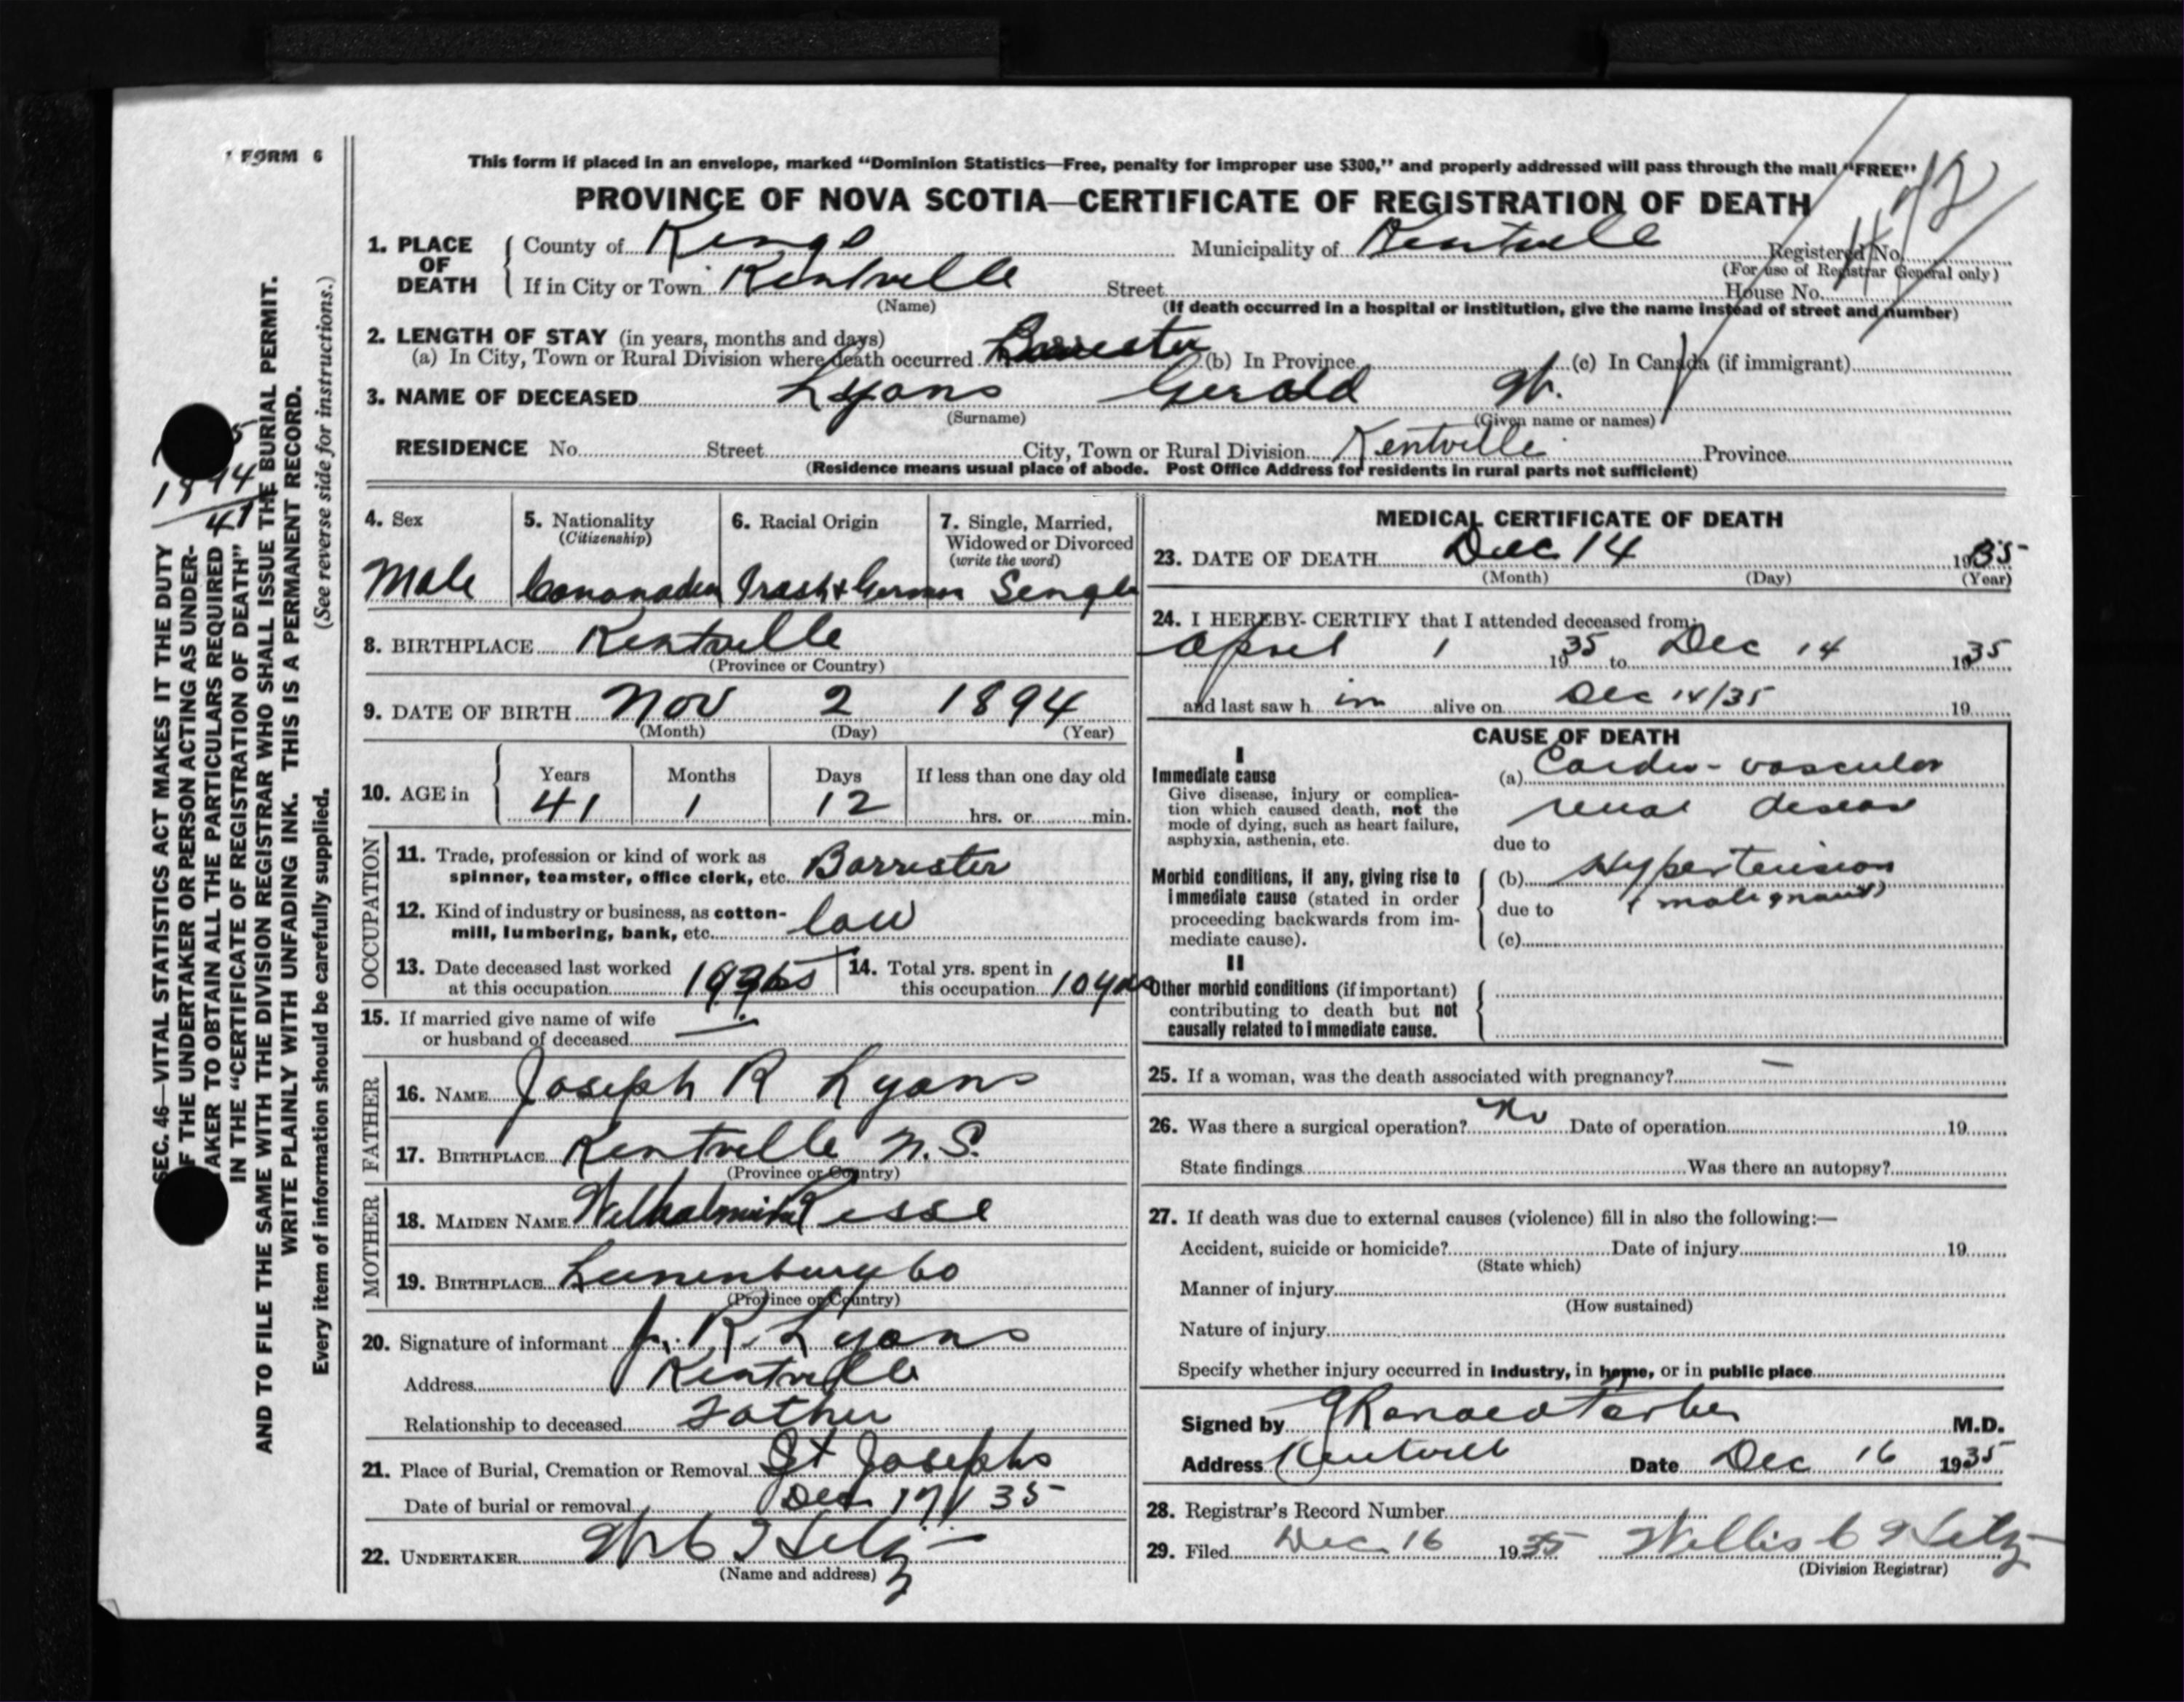 FORM 6
This form if placed in an envelope, marked “Dominion Statistics—Free, penalty for improper use $300,” and properly addressed will pass through the mail “FREE”
PROVINCE OF NOVA SCOTIA—CERTIFICATE OF REGISTRATION OF DEATH
1. PLACE OF DEATH County of Kings Municipality of Kentville Registered No.
(For use of Registrar General only)
If in City or Town Kentville Street House No.
(Name) (If death occurred in a hospital or institution, give the name instead of street and number)
2. LENGTH OF STAY (in years, months and days)
(a) In City, Town or Rural Division where death occurred Barrester (b) In Province (c) In Canada (if immigrant)
3. NAME OF DECEASED Lyons Gerald W.
(Surname) (Given name or names)
RESIDENCE No. Street City, Town or Rural Division Kentville Province
(Residence means usual place of abode. Post Office Address for residents in rural parts not sufficient)
4. Sex 5. Nationality (Citizenship) 6. Racial Origin 7. Single, Married, Widowed or Divorced (write the word)
Male Cananaden Irash & German Sengle
8. BIRTHPLACE Kentville
(Province or Country)
9. DATE OF BIRTH Nov 2 1894
(Month) (Day) (Year)
10. AGE in Years Months Days If less than one day old
41 1 12 hrs. or min.
OCCUPATION
11. Trade, profession or kind of work as
spinner, teamster, office clerk, etc. Barrester
12. Kind of industry or business, as cotton-
mill, lumbering, bank, etc. law
13. Date deceased last worked
at this occupation
14. Total yrs. spent in
this occupation 10 yrs
15. If married give name of wife
or husband of deceased —
FATHER
16. NAME Joseph R Lyons
17. BIRTHPLACE Kentville N.S.
(Province or Country)
MOTHER
18. MAIDEN NAME Wilhalmina
19. BIRTHPLACE Lunenburg Co
(Province or Country)
20. Signature of informant J. R. Lyons
Address Kentville
Relationship to deceased Father
21. Place of Burial, Cremation or Removal St Josephs
Date of burial or removal Dec 17/35
22. UNDERTAKER W C Hiltz
(Name and address)
MEDICAL CERTIFICATE OF DEATH
23. DATE OF DEATH Dec 14 1935
(Month) (Day) (Year)
24. I HEREBY CERTIFY that I attended deceased from:
April 1 1935 to Dec 14 1935
and last saw h im alive on Dec 14/35 19
CAUSE OF DEATH
I
Immediate cause
Give disease, injury or complica-
tion which caused death, not the
mode of dying, such as heart failure,
asphyxia, asthenia, etc.
(a) Cardio-vascular
renal disease
due to
Morbid conditions, if any, giving rise to
immediate cause (stated in order
proceeding backwards from im-
mediate cause).
(b) Hypertension
due to (malignant)
(c)
II
Other morbid conditions (if important)
contributing to death but not
causally related to immediate cause.
25. If a woman, was the death associated with pregnancy? —
26. Was there a surgical operation? No Date of operation 19
State findings Was there an autopsy?
27. If death was due to external causes (violence) fill in also the following:—
Accident, suicide or homicide? Date of injury 19
(State which)
Manner of injury
(How sustained)
Nature of injury
Specify whether injury occurred in industry, in home, or in public place
Signed by M.D.
Address Kentville Date Dec 16 1935
28. Registrar’s Record Number
29. Filed Dec 16 1935 Willis C Hiltz
(Division Registrar)
SEC. 46—VITAL STATISTICS ACT MAKES IT THE DUTY
F THE UNDERTAKER OR PERSON ACTING AS UNDER-
TAKER TO OBTAIN ALL THE PARTICULARS REQUIRED
IN THE “CERTIFICATE OF REGISTRATION OF DEATH”
AND TO FILE THE SAME WITH THE DIVISION REGISTRAR WHO SHALL ISSUE THE BURIAL PERMIT.
WRITE PLAINLY WITH UNFADING INK. THIS IS A PERMANENT RECORD.
Every item of information should be carefully supplied. (See reverse side for instructions.)
1894
41